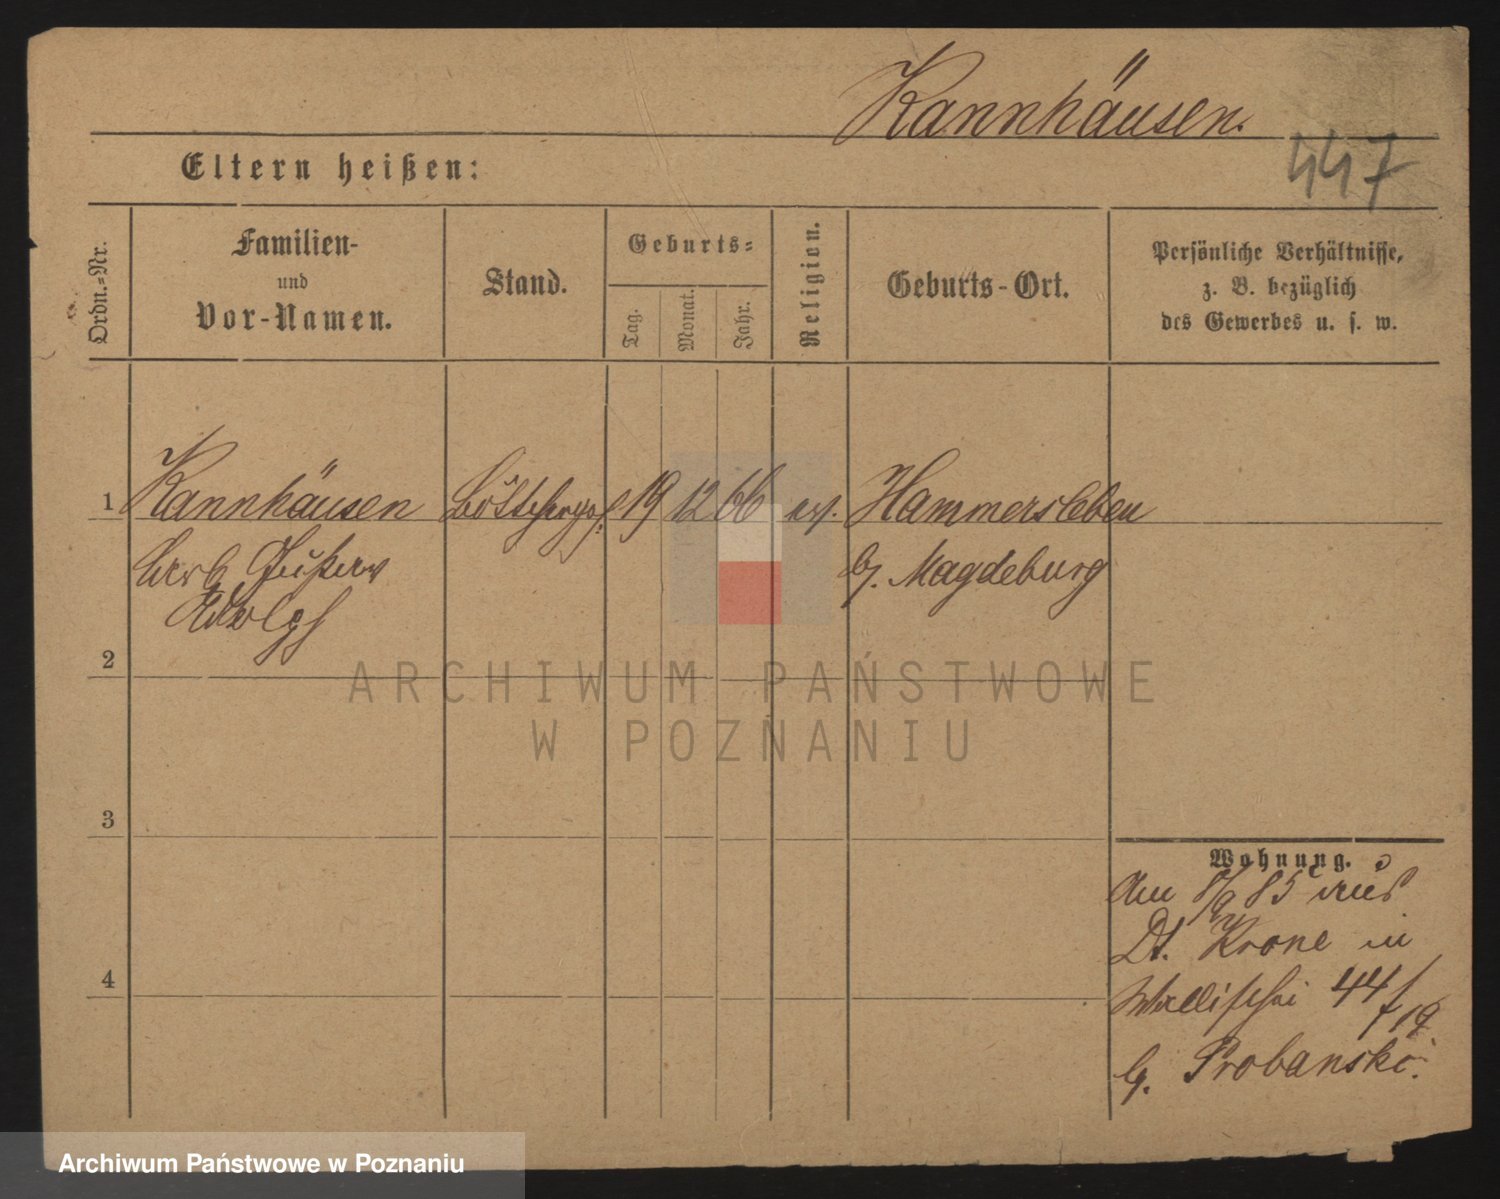 Kannhäusen.
447
Eltern heißen:
Ordn.-Nr.
Familien-
und
Vor-Namen.
Stand.
Geburts-
Tag.
Monat.
Jahr.
Religion.
Geburts-Ort.
Persönliche Verhältnisse,
z. B. bezüglich
des Gewerbes u. s. w.
1 Kannhäusen Böttcherges. 19 12 66 ev. Hammersleben
Carl Gustav b. Magdeburg
Adolph
2
ARCHIWUM PAŃSTWOWE
W POZNANIU
3
Wohnung.
Am 8/9 85 aus
Dt. Krone in
4 Wallischei 44/
/19
b. Probanski.
Archiwum Państwowe w Poznaniu